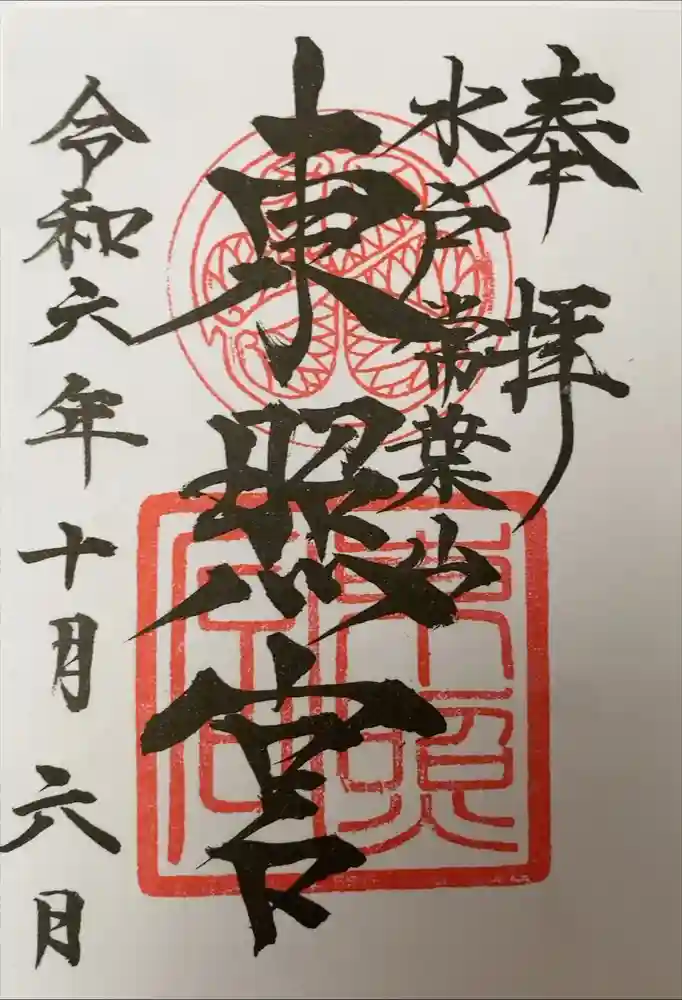 奉拝
水戸常葉山
東照宮
令和六年十月六月
東照宮